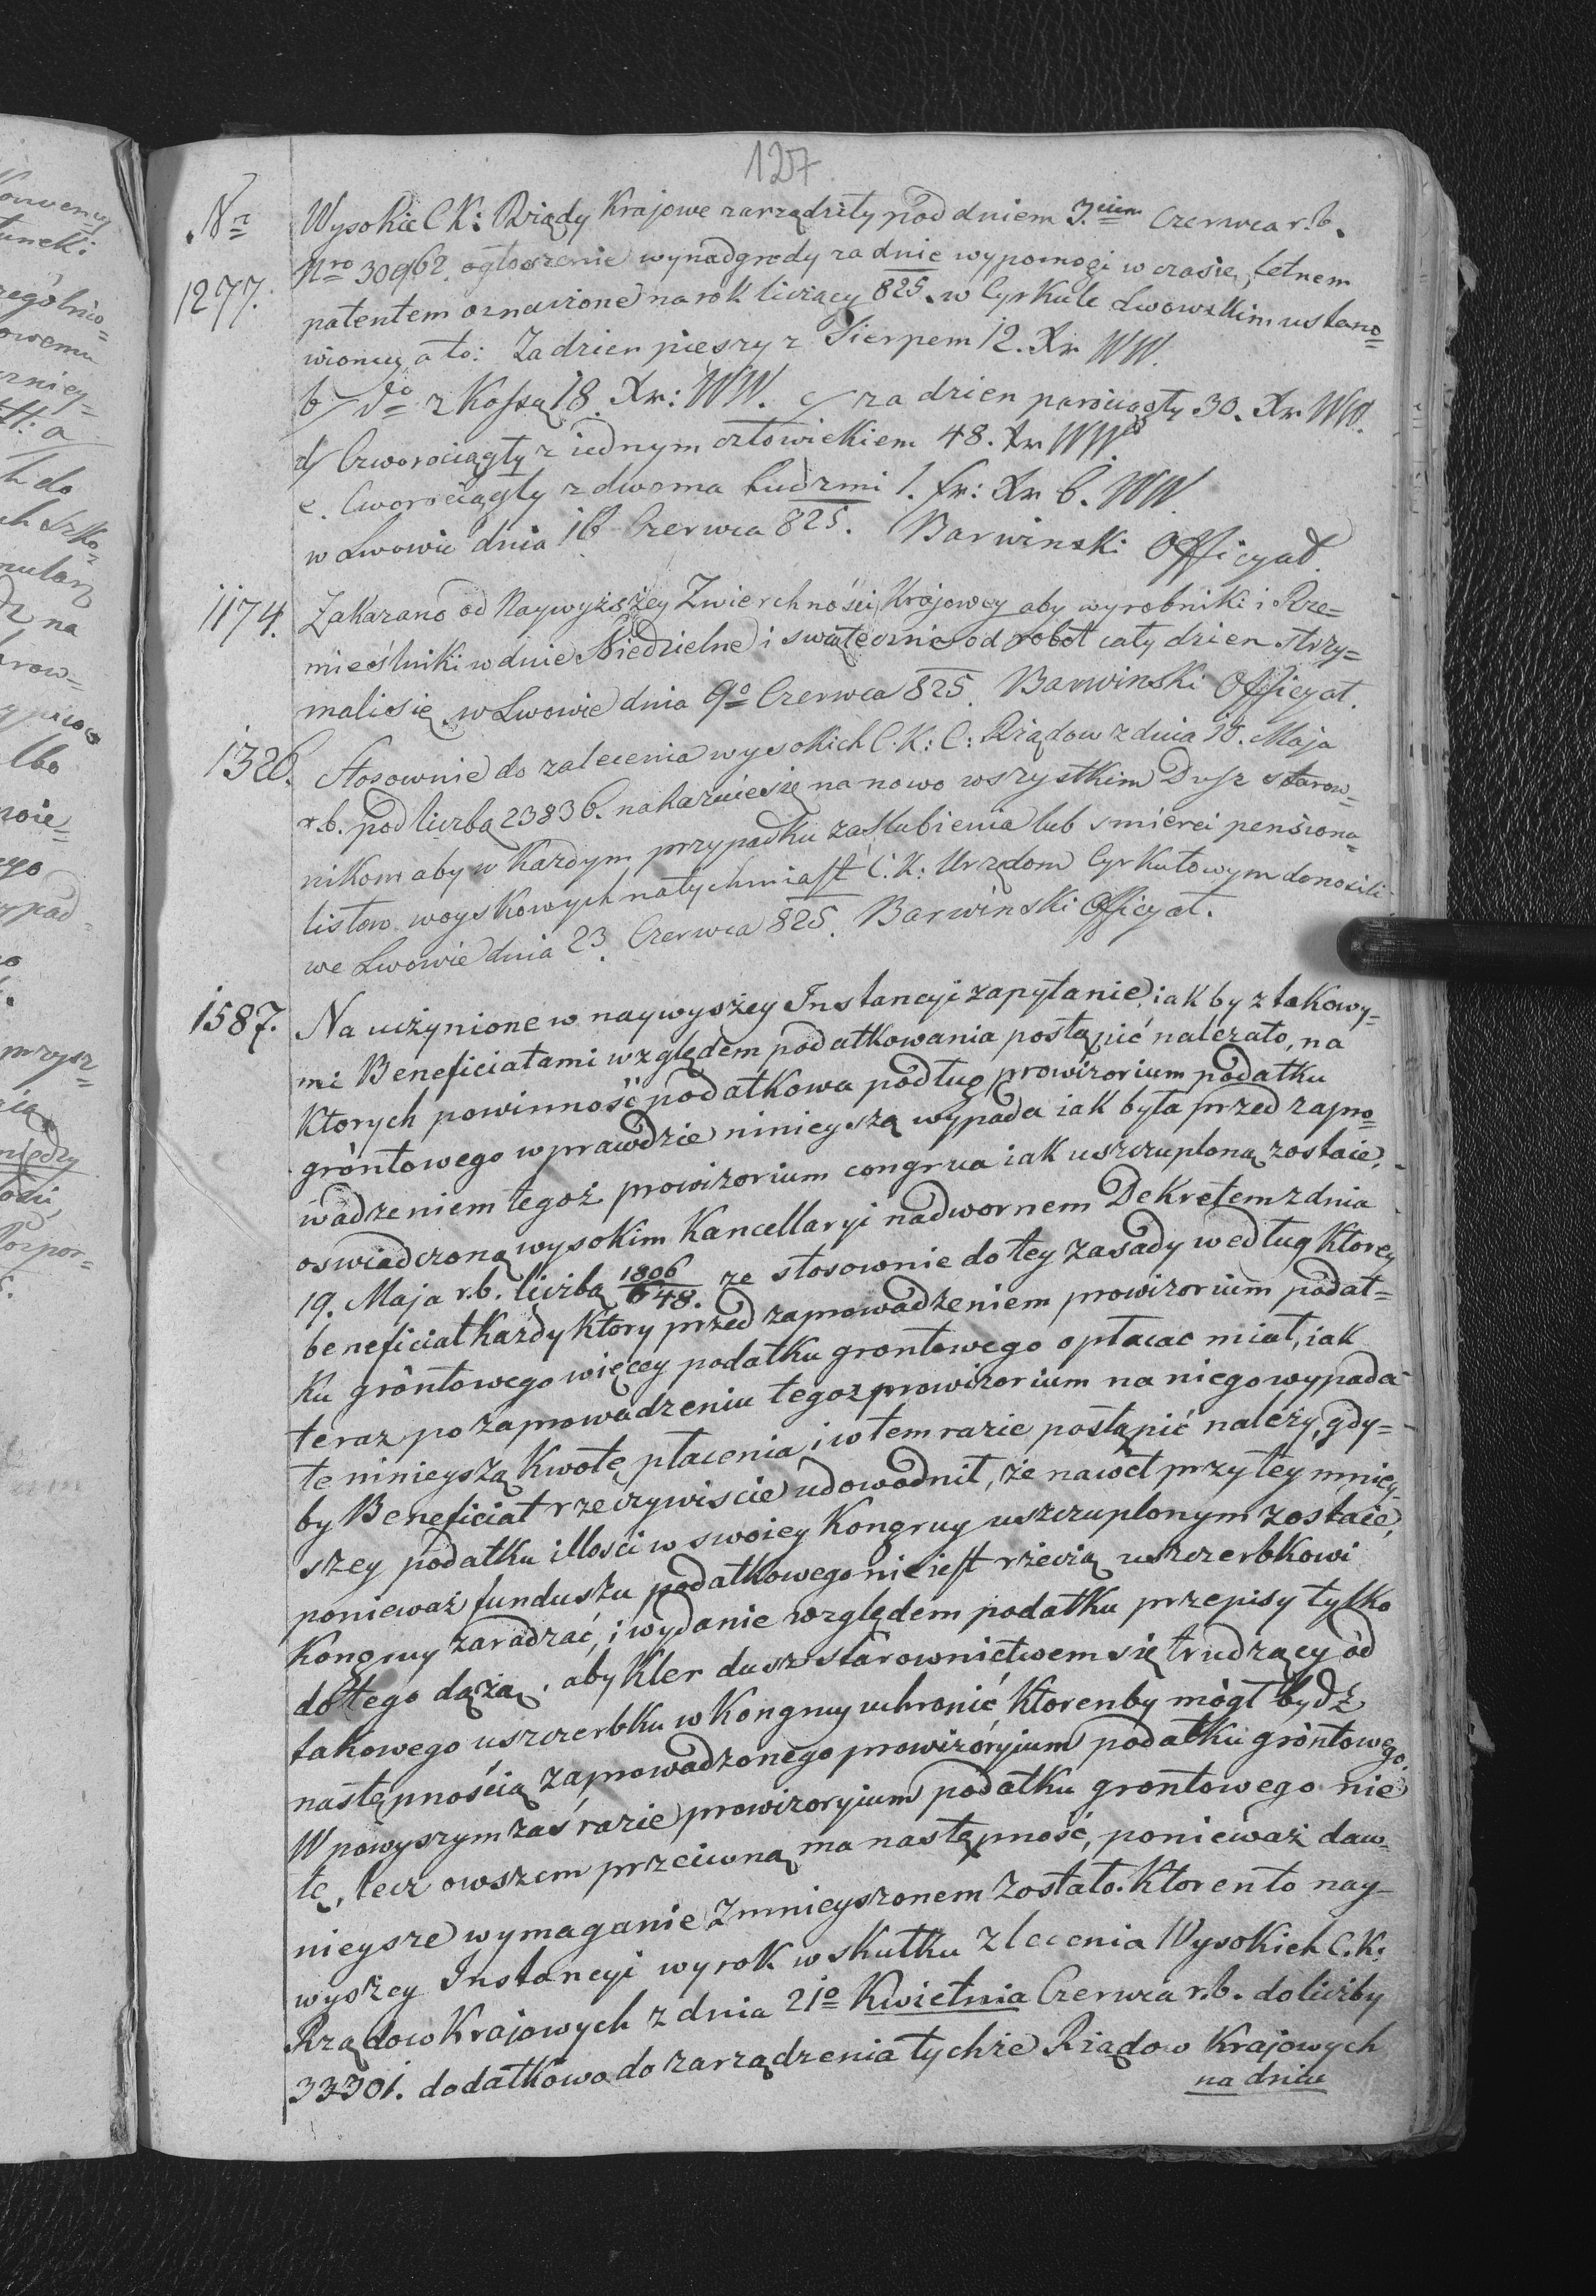 127
Nr Wysokie C K: Rządy Krajowe zarządziły pod dniem 3.ciem Czerwca r. b.
1277. Nro 30962. ogłoszenie wynadgrody za dnie wypomogi w czasie letnem
patentem oznaczone na rok liczący 825. w Cyrkule Lwowskim ustano=
wioney, a to: Za dzien pieszy z Sierpem 12. Xr WW.
b/ do z Kossą 18. Xr: WW. c/ za dzien parociągły 30. Xr WW.
d/ Czworociągły z iednym człowiekiem 48. Xr WW.
e. Cworociągły z dwoma Ludzmi 1. fr: Xr 6. WW.
w Lwowie dnia 16 Czerwca 825. Barwinski Officyał.
1174. Zakazano od Naywyższey Zwierchności Krajowey aby wyrobniki i Rze=
mieślniki w dnie Niedzielne i swąteczne od robot cały dzien strzy=
mali się w Lwowie dnia 9o Czerwca 825. Barwinski Officyał.
1326. Stosownie do zalecenia wysokich C. K: C: Rządow z dnia 18. Maja
r. b. pod liczbą 23836. nakazuie się na nowo wszystkim Dusz starow=
nikom aby w każdym przypadku zaslubienia lub smierci pensiona=
listow woyskowych natychmiast C. K: Urzędom Cyrkułowym donosili
we Lwowie dnia 23. Czerwca 825. Barwinski Officyał.
1587. Na uczynione w naywyszey Instancyi zapytanie, iak by z takowy=
mi Beneficiałami względem podatkowania postąpić należało, na
Ktorych powinność podatkowa podług prowizorium podatku
gróntowego wprawdzie ninieyszą wypada iak była przed zapro=
wadzeniem tegoż prowizorium congrua iak uszczuploną zostaie,
oswiadczoną wysokim Kancellaryi nadwornem Dekretem z dnia
19. Maja r. b. liczbą 1806/648. ze stosownie do tey zasady według Ktorey
beneficiał Kazdy Ktory przed zaprowadzeniem prowizorium podat=
ku gróntowego więcey podatku grontowego opłacac miał, iak
teraz po zaprowadzeniu tegoz prowizorium na niego wypada
tę ninieyszą Kwotę płacenia, i w tem razie postąpić należy, gdy=
by Beneficiał rzeczywiscie udowodnił, że nawet przy tey mniey-
szey podatku illości w swoiey Kongruy uszczuplonym zostaie,
ponieważ funduszu podatkowego nie iest rzeczą uszczerbkowi
Kongruy zaradzać, i wydanie względem podatku przepisy tylko
do tego dążą, aby Kler dusz starownictwem się trudzący od
takowego uszczerbku w Kongruy uchronić Ktorenby mógł bydź
następnością zaprowadzonego prowizoryium podatku gróntowego.
W powyszym zaś razie prowizoryium podatku grontowego nie
tę, lecz owszem przeciwną ma następność, ponieważ daw-
nieysze wymaganie Zmnieyszonem zostało. Ktoren to nay-
wyszey Instancyi wyrok w skutku zlecenia Wysokich C. K:
Rządow Krajowych z dnia 21o Kwietnia Czerwca r. b. do liczby
33301. dodatkowo do zarządzenia tychże Rządow Krajowych
na dniu